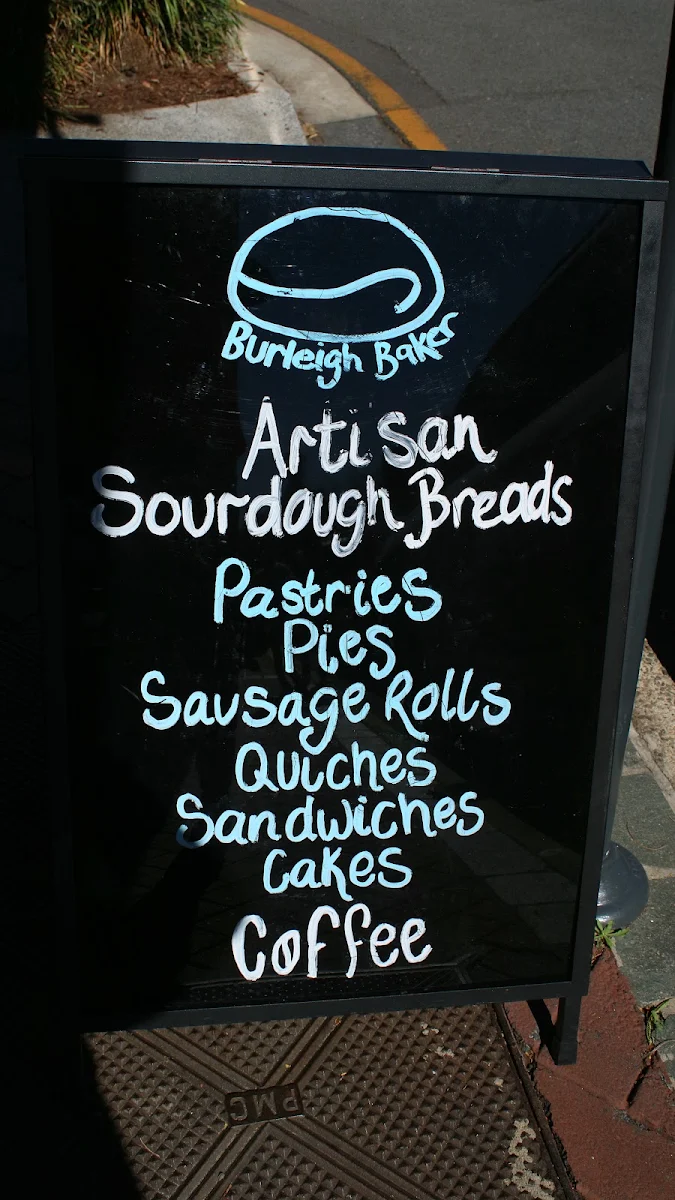 Burleigh Baker
Artisan
Sourdough Breads
Pastries
Pies
Sausage Rolls
Quiches
Sandwiches
Cakes
Coffee
PMC